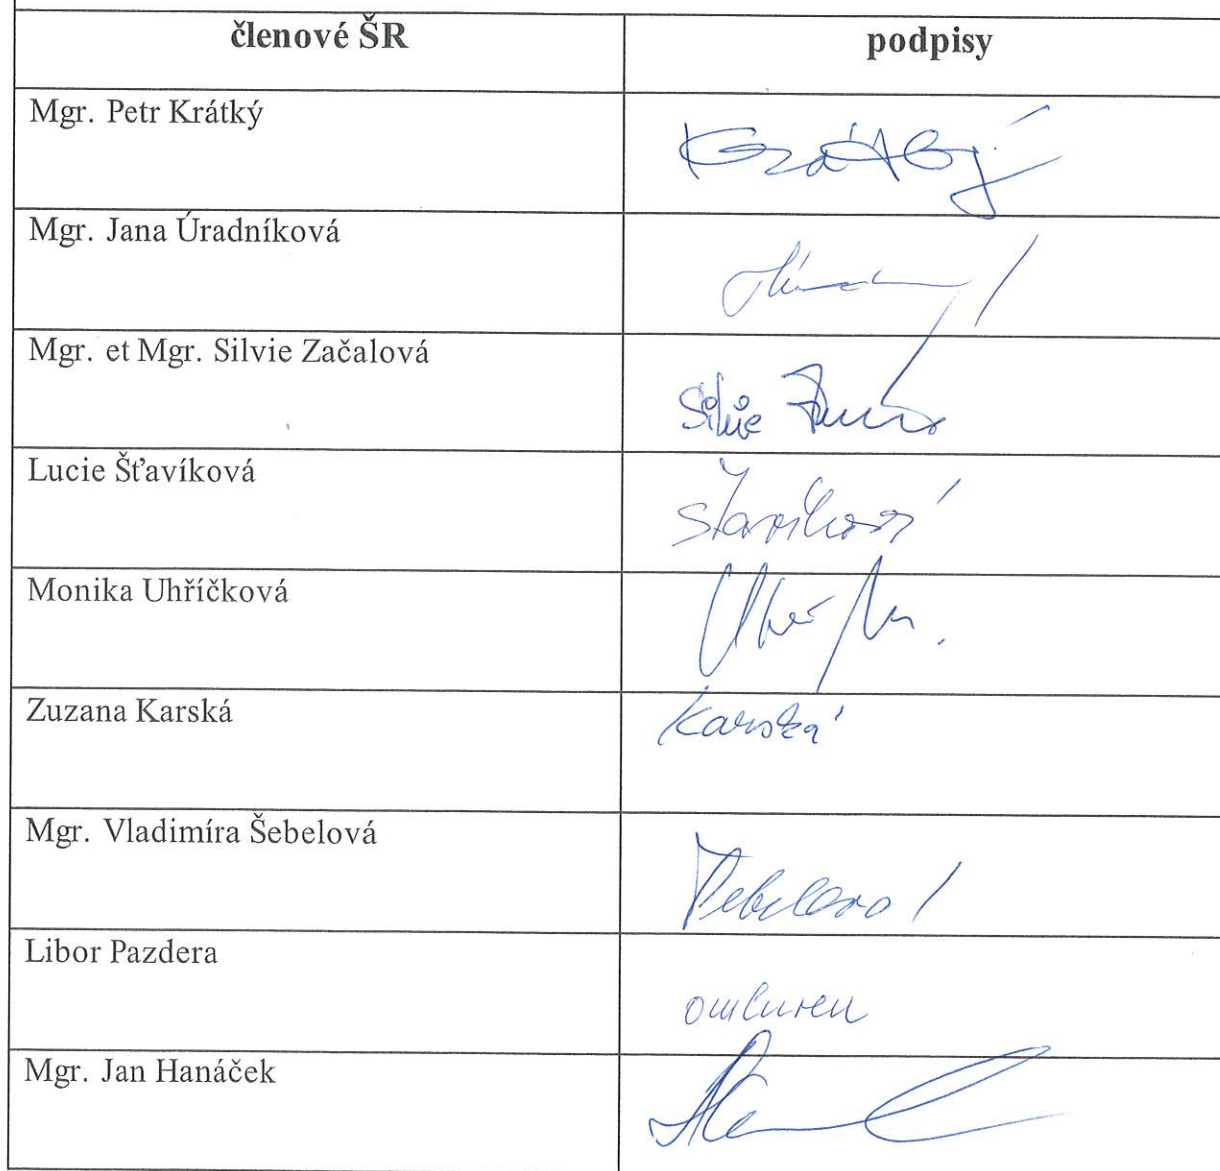 členové ŠR podpisy
Mgr. Petr Krátký Krátký
Mgr. Jana Úradníková
Mgr. et Mgr. Silvie Začalová Silvie
Lucie Šťavíková Šťavíková
Monika Uhříčková
Zuzana Karská Karská
Mgr. Vladimíra Šebelová Šebelová
Libor Pazdera omluven
Mgr. Jan Hanáček